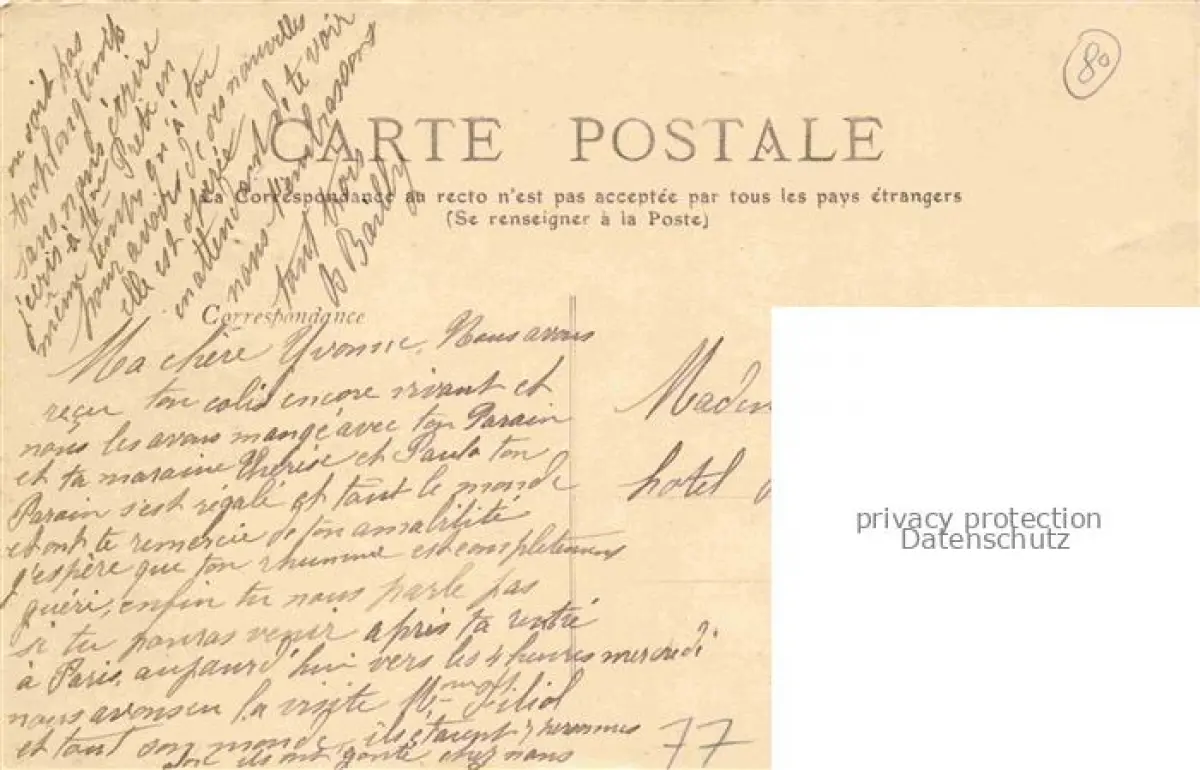 80
CARTE POSTALE
La Correspondance au recto n'est pas acceptée par tous les pays étrangers
(Se renseigner à la Poste)
Correspondance
Ma chère Yvonne. Nous avons
reçu ton colis encore vivant et
nous les avons mangé avec ton Parain
et ta maraine Thérèse et Paulo ton
Parain s'est régalé et tout le monde
et ont te remercie de ton amabilité
J'espère que ton rhumme est completement
guéri, enfin tu nous parle pas
si tu pouras venir après ta rentré
à Paris. aujourd'hui vers les 4 heures mercredi
nous avons eu la visite Mme Filiol
et tout son monde, ils étaient 7 personnes
ils ont gouté chez nous
ne soit pas
trop longtemps
sans nous écrire
j'écris à Me Prete en
même temps qu'à toi
pour avoirs de ces nouvelles
elle est opérée
en attendant de te voir
nous t'embrassons
tout trois
Bailly
Madem
hotel
77
privacy protection
Datenschutz